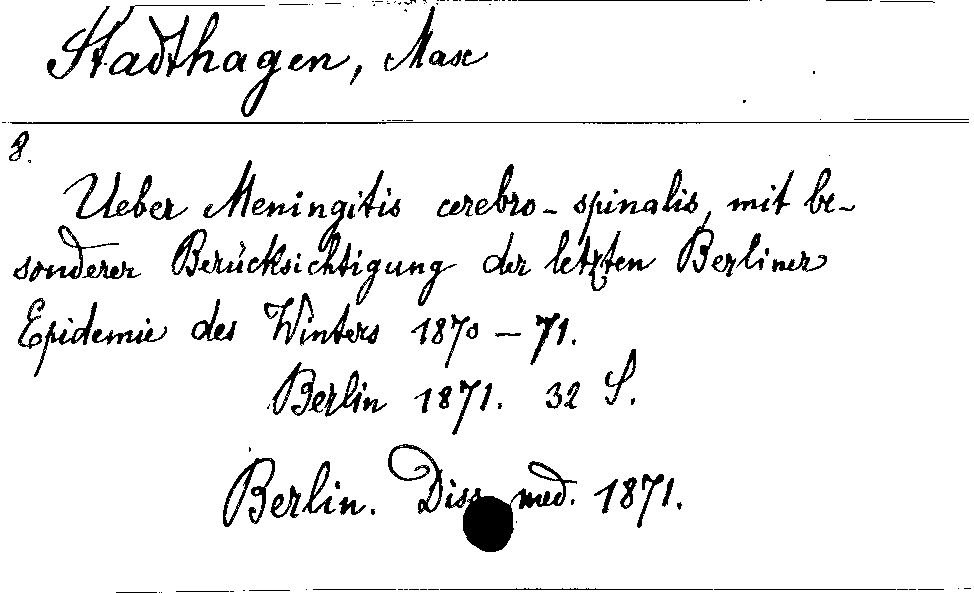 Stadthagen, Max
8.
Ueber Meningitis cerebro-spinalis, mit be-
sonderer Berücksichtigung der letzten Berliner
Epidemie des Winters 1870-71.
Berlin 1871. 32 S.
Berlin. Diss. med. 1871.